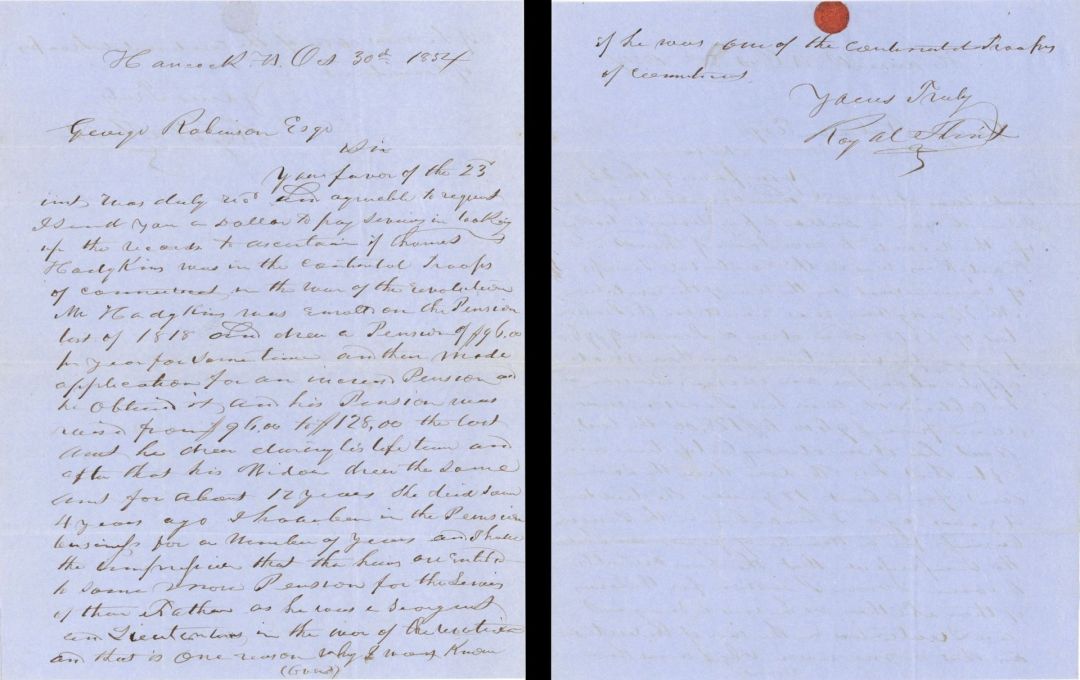 Hancock N. Oct 30th 1854
George Robinson Esqr
Sir
Your favor of the 23
inst was duly recd And agreable to request
I send you a Dollar to pay in looking
up the records to ascertain if Thomas
Hodgkins was in the continental Troops
of connecticut in the war of the revolution
Mr Hodgkins was Enroll on the Pension
list of 1818 And drew a Pension of $96.00
pr year for some time and then made
application for an increas Pension and
he obtaind it and his Pension was
raisd from $96.00 to $128,00 the last
amt he drew during his life time and
after that his Widow drew the same
amt for about 12 years She died some
4 years ago I have been in the Pension
business for a Number of years and I have
the impression that the heirs are Entitled
to some more Pension for the Servis
of their Father as he was a Sergent
Lieutenant in the war of the
and that is one reason why I want know
(Over)
if he was one of the continental Troops
of
Yours Truly
Royal Flint